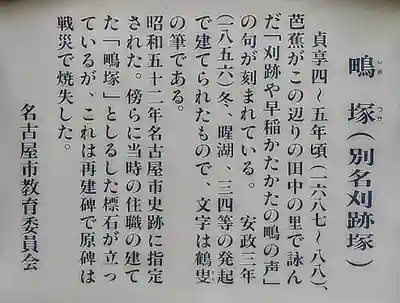 鴫塚(別名刈跡塚)
しぎ づか
貞享四~五年頃(一六八七~八八)、
芭蕉がこの辺りの田中の里で詠ん
だ「刈跡や早稲かたかたの鴫の声」
の句が刻まれている。 安政三年
(一八五六)冬、曜湖、三四等の発起
で建てられたもので、文字は鶴叟
の筆である。
昭和五十二年名古屋市史跡に指定
された。傍らに当時の住職の建て
た「鴫塚」としるした標石が立っ
ているが、これは再建碑で原碑は
戦災で焼失した。
名古屋市教育委員会